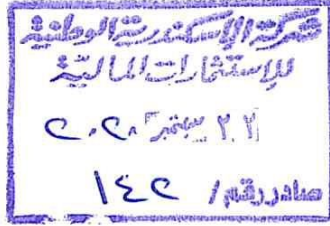 شركة الإسكندرية الوطنية
للإستثمارات المالية
٢٢ سبتمبر ٢٠٢٠
صادر رقم / ١٤٢